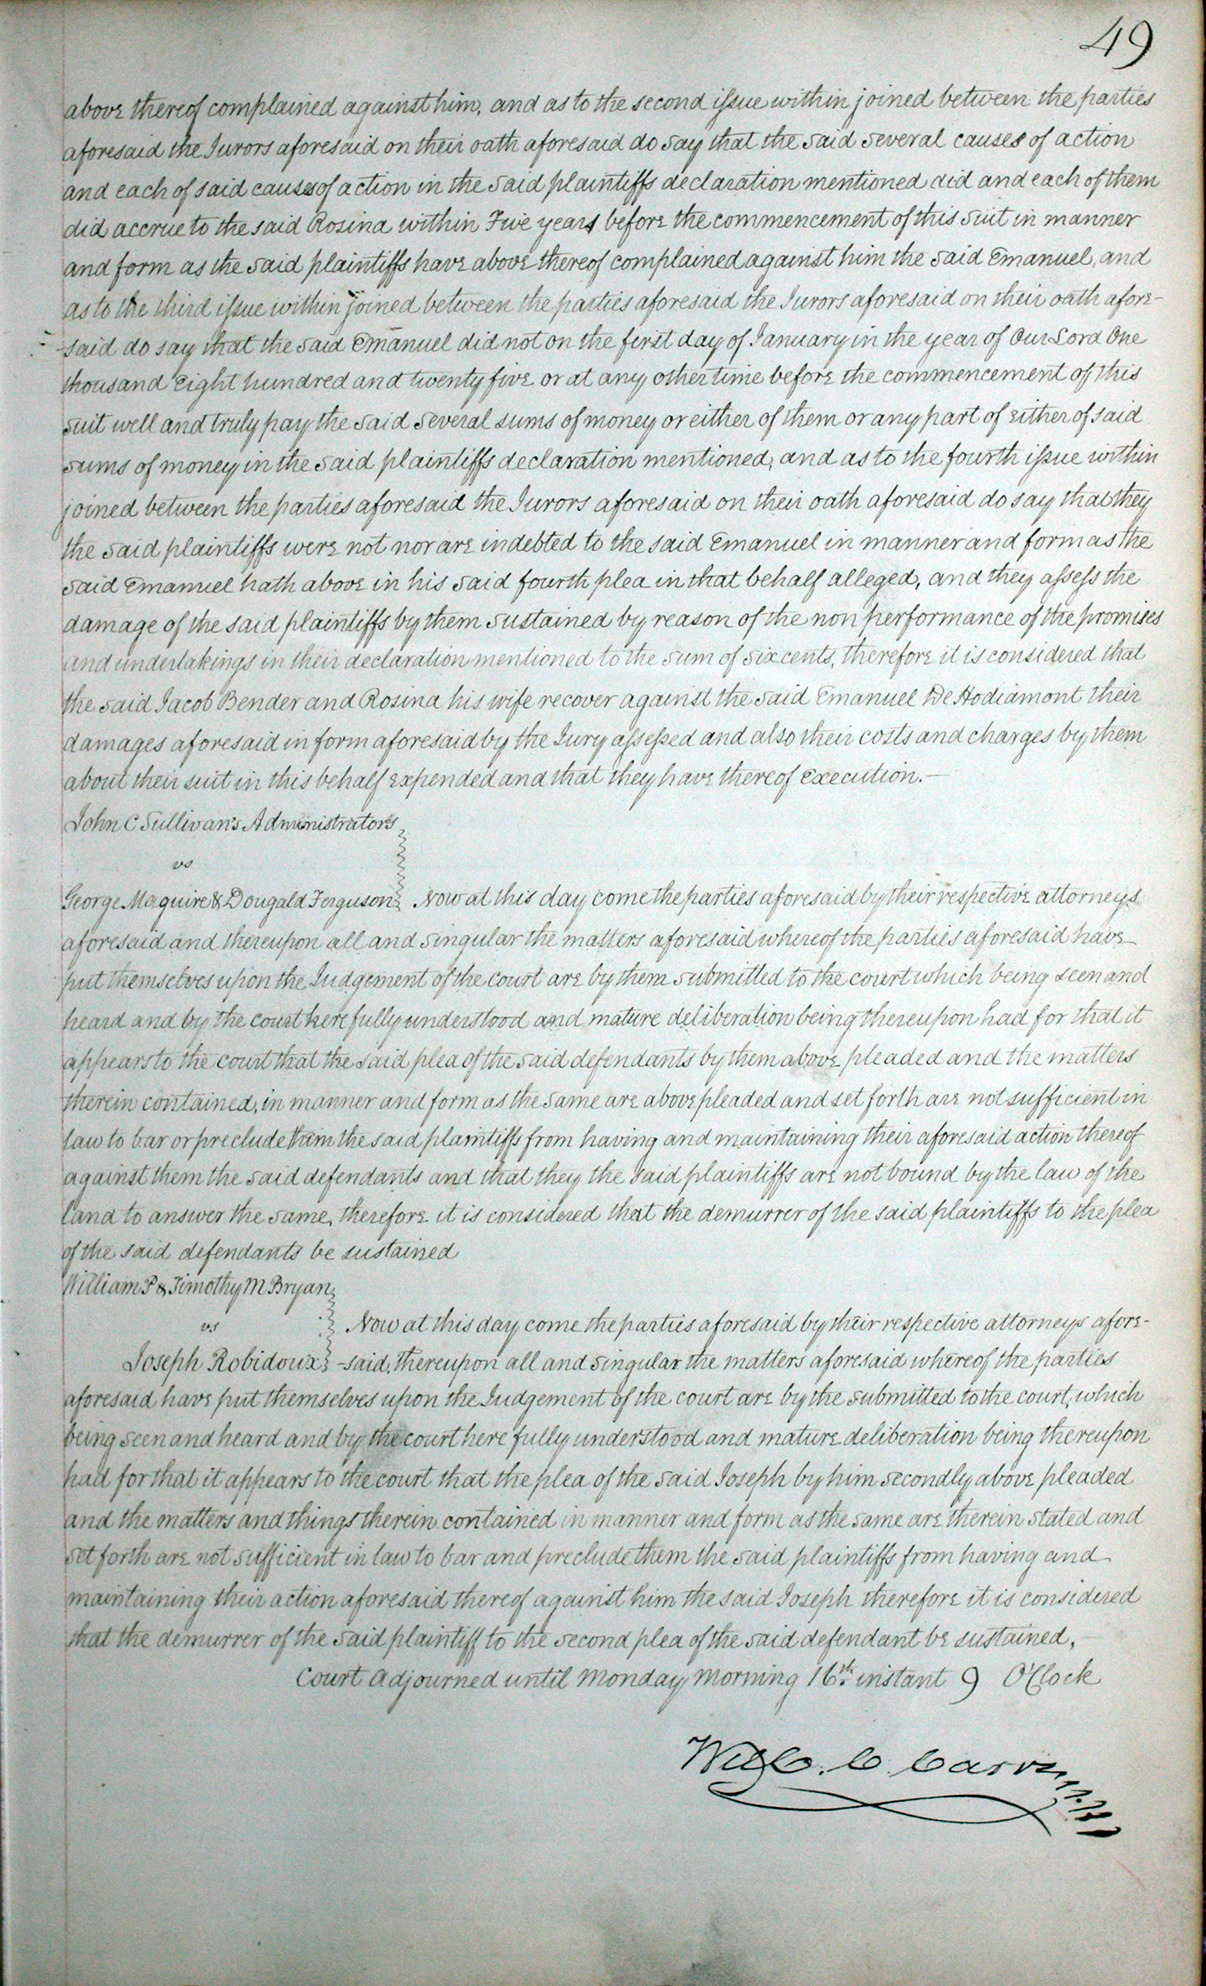 49
above thereof complained against him, and as to the second issue within joined between the parties
aforesaid the Jurors aforesaid on their oath aforesaid do say that the said several causes of action
and each of said causes of action in the said plaintiffs declaration mentioned did and each of them
did accrue to the said Rosina within Five years before the commencement of this suit in manner
and form as the said plaintiffs have above thereof complained against him the said Emanuel, and
as to the third issue within joined between the parties aforesaid the Jurors aforesaid on their oath afore-
-said do say that the said Emanuel did not on the first day of January in the year of Our Lord One
thousand Eight hundred and twenty five or at any other time before the commencement of this
suit well and truly pay the said several sums of money or either of them or any part of either of said
sums of money in the said plaintiffs declaration mentioned, and as to the fourth issue within
joined between the parties aforesaid the Jurors aforesaid on their oath aforesaid do say that they
the said plaintiffs were not nor are indebted to the said Emanuel in manner and form as the
said Emanuel hath above in his said fourth plea in that behalf alleged, and they assess the
damage of the said plaintiffs by them sustained by reason of the non performance of the promises
and undertakings in their declaration mentioned to the sum of six cents, therefore it is considered that
the said Jacob Bender and Rosina his wife recover against the said Emanuel De Hodiamont their
damages aforesaid in form aforesaid by the Jury assessed and also their costs and charges by them
about their suit in this behalf expended and that they have thereof execution.—
John C Sullivan's Administrators
vs
George Maguire & Dougald Ferguson Now at this day come the parties aforesaid by their respective attorneys
aforesaid and thereupon all and singular the matters aforesaid whereof the parties aforesaid have
put themselves upon the Judgement of the court are by them submitted to the court which being seen and
heard and by the court here fully understood and mature deliberation being thereupon had for that it
appears to the court that the said plea of the said defendants by them above pleaded and the matters
therein contained, in manner and form as the same are above pleaded and set forth are not sufficient in
law to bar or preclude them the said plaintiffs from having and maintaining their aforesaid action thereof
against them the said defendants and that they the said plaintiffs are not bound by the law of the
land to answer the same, therefore it is considered that the demurrer of the said plaintiffs to the plea
of the said defendants be sustained
William P & Timothy M Bryan
vs Now at this day come the parties aforesaid by their respective attorneys afore-
Joseph Robidoux -said, thereupon all and singular the matters aforesaid whereof the parties
aforesaid have put themselves upon the Judgement of the court are by the submitted to the court, which
being seen and heard and by the court here fully understood and mature deliberation being thereupon
had for that it appears to the court that the plea of the said Joseph by him secondly above pleaded
and the matters and things therein contained in manner and form as the same are therein stated and
set forth are not sufficient in law to bar and preclude them the said plaintiffs from having and
maintaining their action aforesaid thereof against him the said Joseph therefore it is considered
that the demurrer of the said plaintiff to the second plea of the said defendant be sustained,—
Court adjourned until Monday Morning 16th instant 9 O'Clock
C. Carr